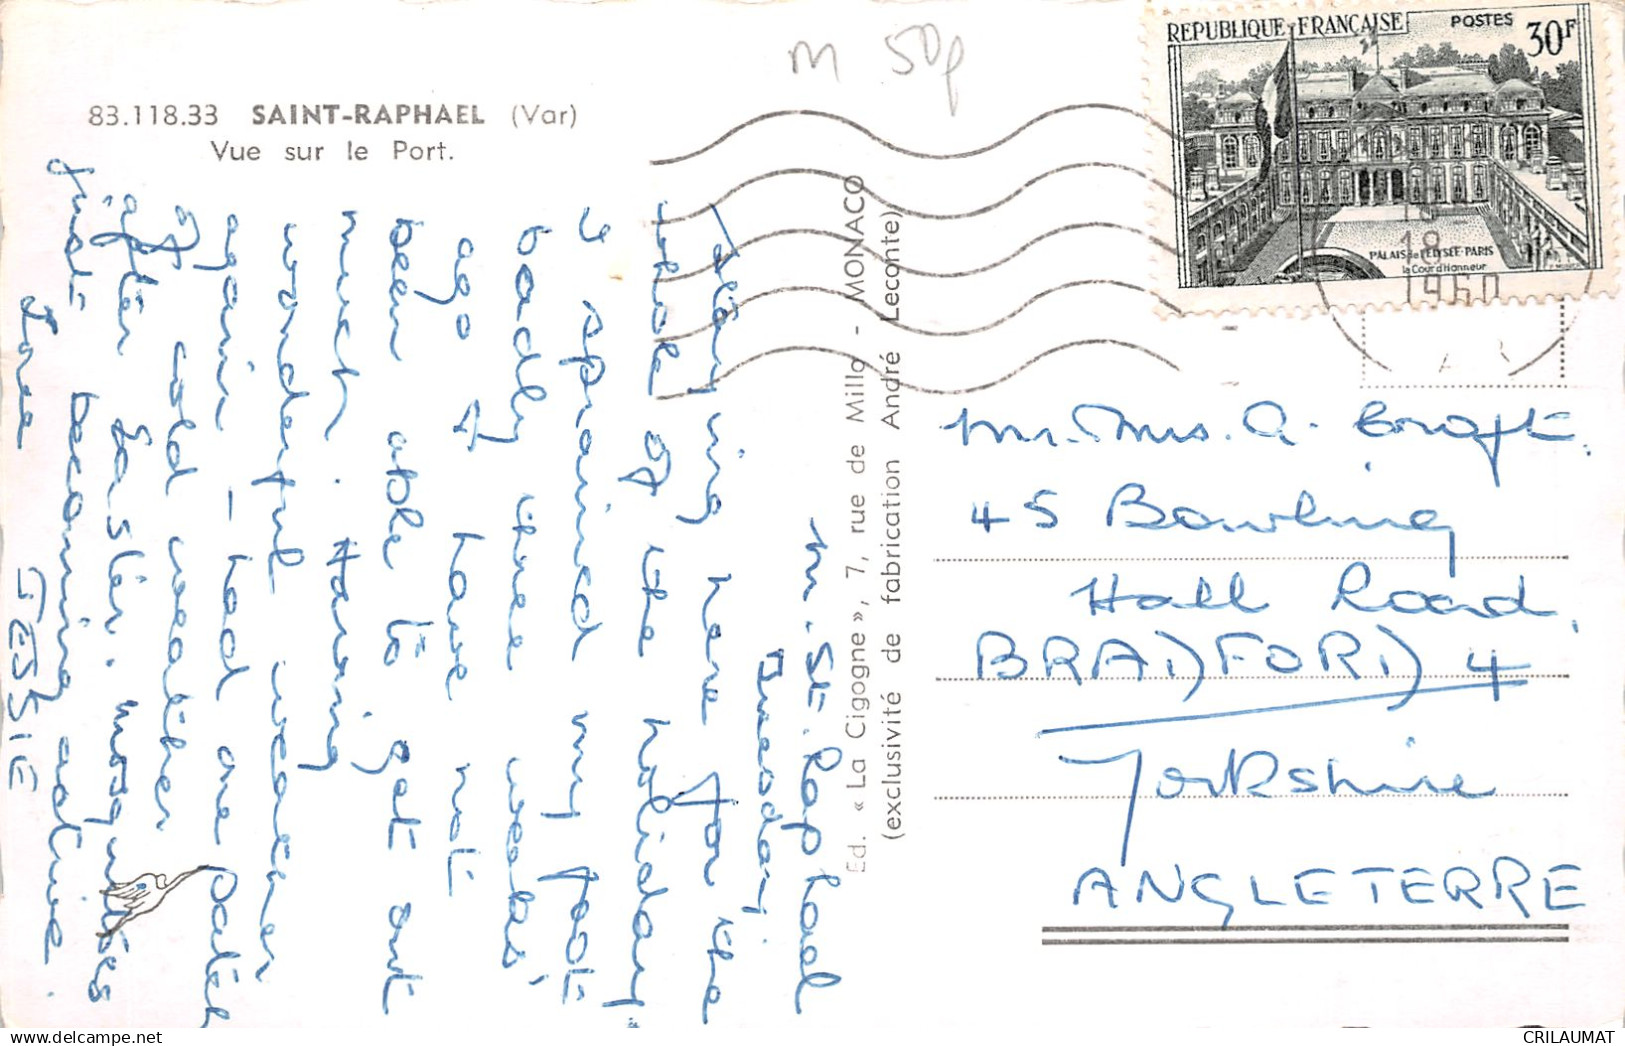 83.118.33 SAINT-RAPHAEL (Var)
Vue sur le Port.
m 50p
REPUBLIQUE FRANÇAISE
POSTES
30F
PALAIS de l'ELYSÉE-PARIS
la Cour d'Honneur
18
1960
VAR
Ed. « La Cigogne », 7, rue de Millo - MONACO
(exclusivité de fabrication André Leconte)
m. St. Raphael
Tuesday
Staying here for the
whole of the holiday
I sprained my foot
badly three weeks
ago & have not
been able to get out
much. Having
wonderful weather
again - had one patch
of cold weather
after Easter. mosquitoes
just becoming active.
Love
JESSIE
Mr. Mrs. A.
45 Bowling
Hall Road,
BRADFORD 4
Yorkshire
ANGLETERRE
CRILAUMAT